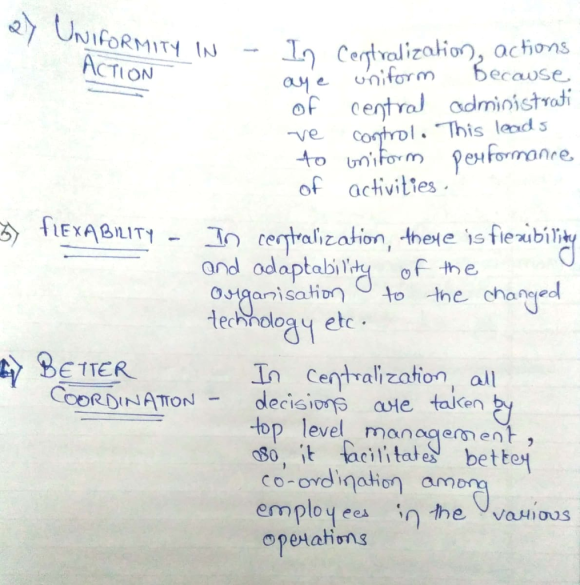 2) UNIFORMITY IN - In Centralization, actions
ACTION are uniform because
of central administrati
-ve control. This leads
to uniform performance
of activities.
3) FLEXABILITY - In centralization, there is flexibility
and adaptability of the
organisation to the changed
technology etc.
4) BETTER In Centralization, all
COORDINATION - decisions are taken by
top level management,
so, it facilitates better
co-ordination among
employees in the various
operations